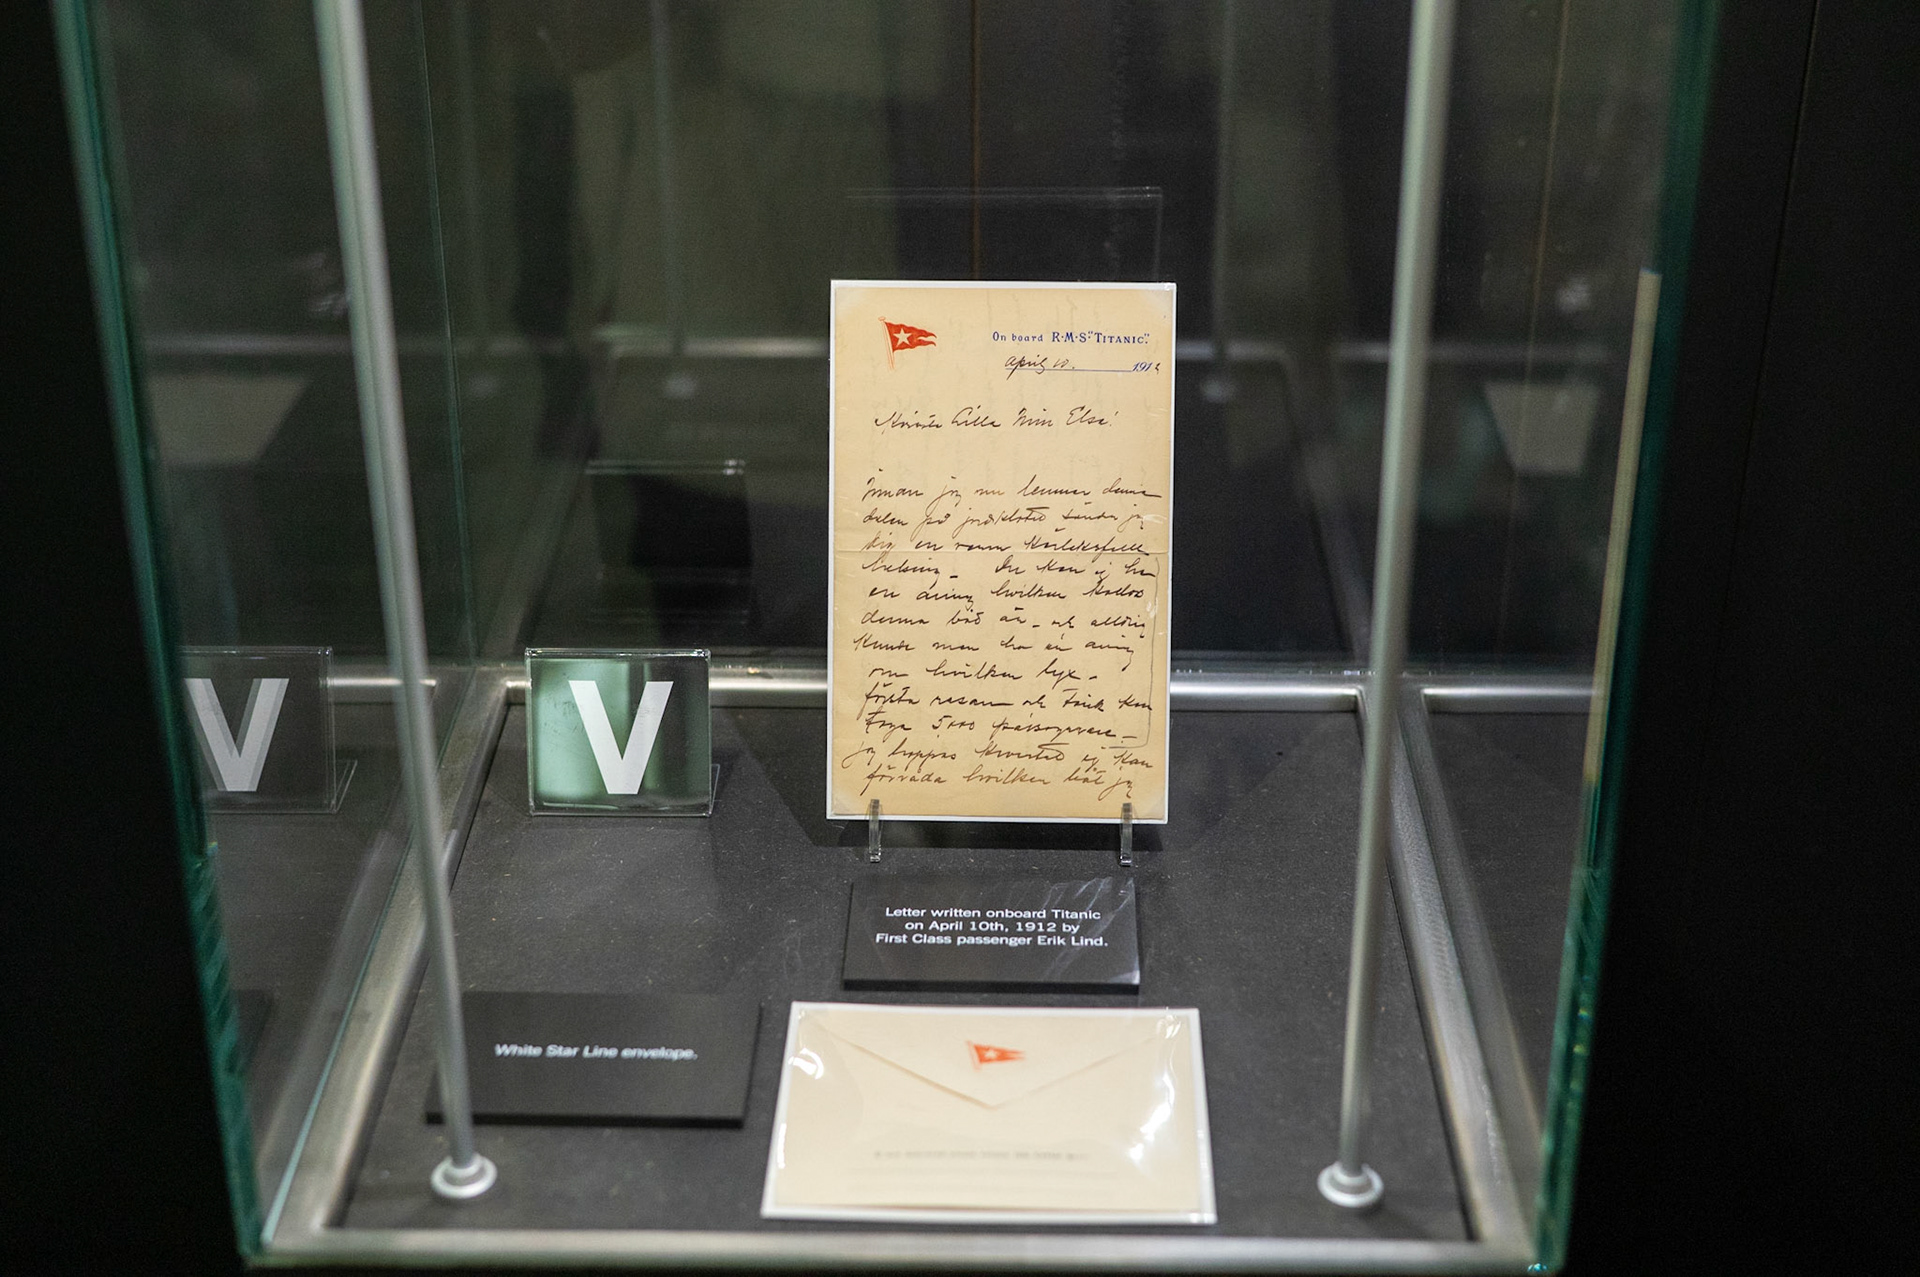 On board R·M·S "TITANIC".
april 10. 1912
Käraste Lilla Min Elsa!
Innan jag nu lemnar denna
delen på jordklotet sänder jag
dig en varm kärleksfull
helsning _ Du kan ej ha
en aning hvilken koloss
denna båt är _ och aldrig
kunde man ha en aning
om hvilken lyx _
första resan och tänk kan
taga 5,000 passagerare _
jag hoppas kan
förråda hvilken båt jag
V
V
Letter written onboard Titanic
on April 10th, 1912 by
First Class passenger Erik Lind.
White Star Line envelope.